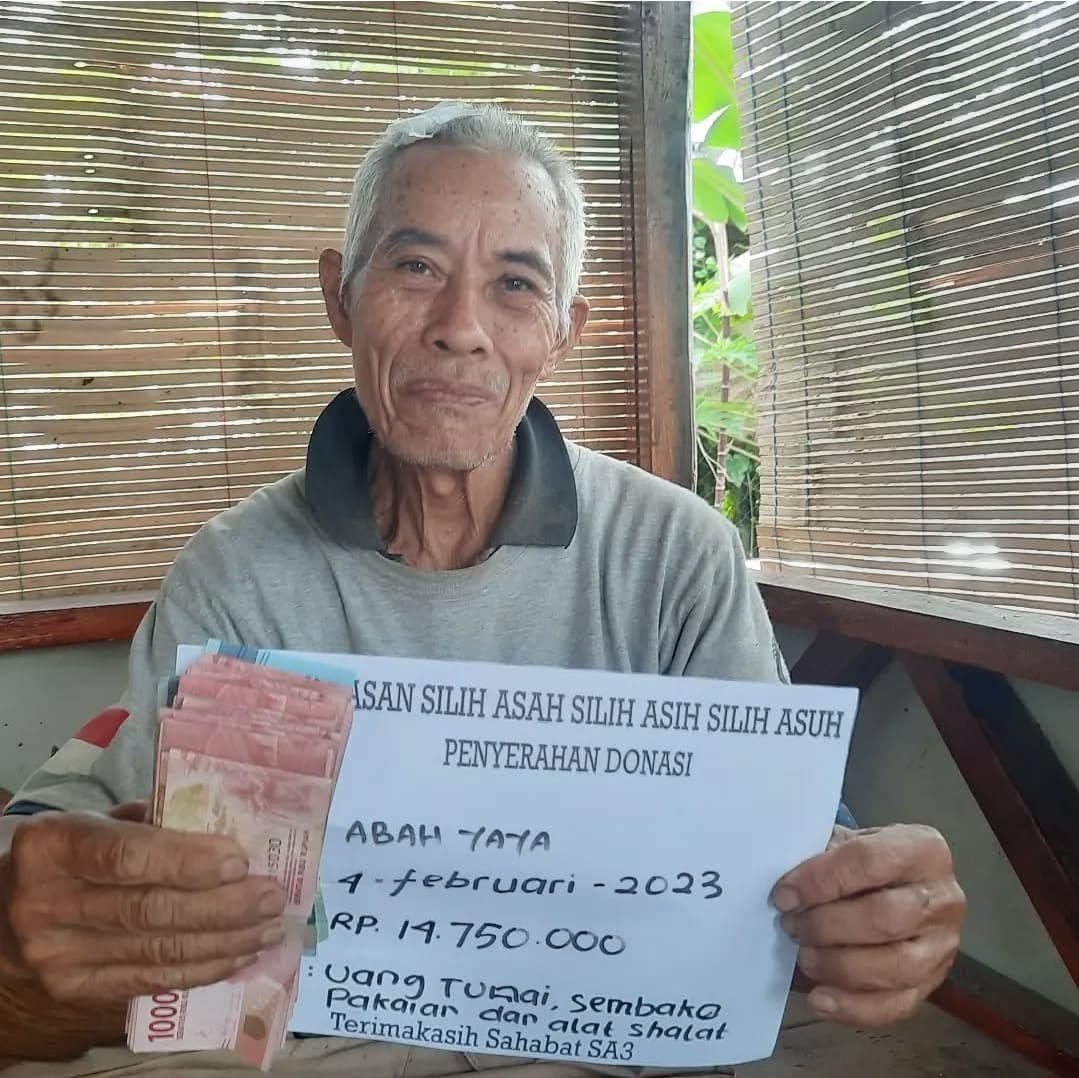 ASAN SILIH ASAH SILIH ASIH SILIH ASUH
PENYERAHAN DONASI
ABAH YAYA
4 - februari - 2023
RP. 14.750.000
: Uang Tunai, Sembako
Pakaian dan alat shalat
Terimakasih Sahabat SA3
1000